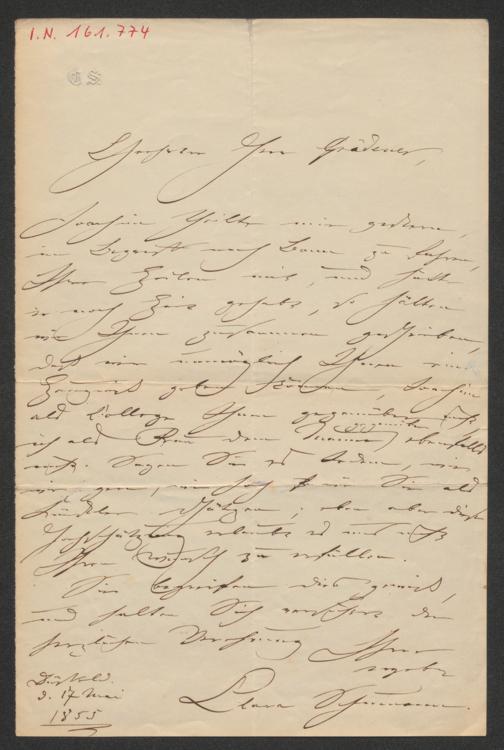 I.N. 161.774
CS
Geehrter Herr Grädener,
Joachim theilte mir gestern,
im Begriff nach Bonn zu fahren,
Ihre Zeilen mit, und hätte
er noch Zeit gehabt, so hätten
wir Ihnen zusammen geschrieben,
daß wir unmöglich Ihnen ein
Zeugniß geben können, Joachim
als College Ihnen gegenüber nicht,
ich als Frau dem Manne gegenüber ebenfalls
nicht. Sagen Sie es Andern, wie
wir gern, wie hoch wir Sie als
Künstler schätzen; eben aber diese
Hochschätzung erlaubt es uns nicht
Ihren Wunsch zu erfüllen.
Sie begreifen dies gewiß,
und halten Sich versichert der
herzlichen Verehrung Ihrer
ergebenen
Clara Schumann.
Düsseld.
d. 17 Mai
1855